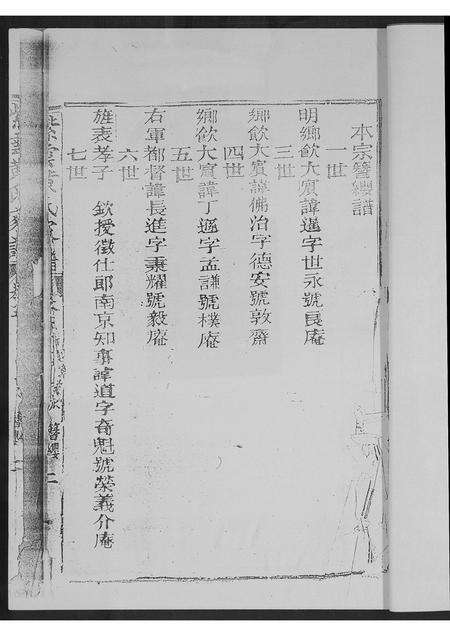 本宗簪纓譜
一世
明鄉飲大賓諱暹字世永號良庵
三世
鄉飲大賓諱佛治字德安號敦齋
四世
鄉飲大賓諱丁遜字孟謙號樸庵
五世
右軍都督諱長進字秉耀號毅庵
六世
旌表孝子 欽授徵仕郎南京知事諱道字奇魁號榮義介庵
七世
簪纓 二